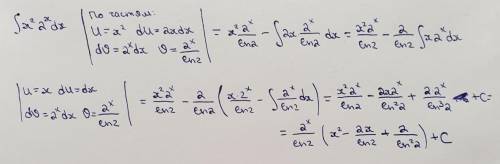 ∫x²2ˣdx | По частям: U = x² dU = 2xdx dϑ = 2ˣdx ϑ = 2ˣ/ln2 | = x²2ˣ/ln2 - ∫2x 2ˣ/ln2 dx = x²2ˣ/ln2 - 2/ln2 ∫x2ˣdx
| U = x dU = dx dϑ = 2ˣdx ϑ = 2ˣ/ln2 | = x²2ˣ/ln2 - 2/ln2 (x·2ˣ/ln2 - ∫2ˣ/ln2 dx) = x²2ˣ/ln2 - 2x2ˣ/ln²2 + 2·2ˣ/ln³2 + C =
= 2ˣ/ln2 (x² - 2x/ln2 + 2/ln²2) + C